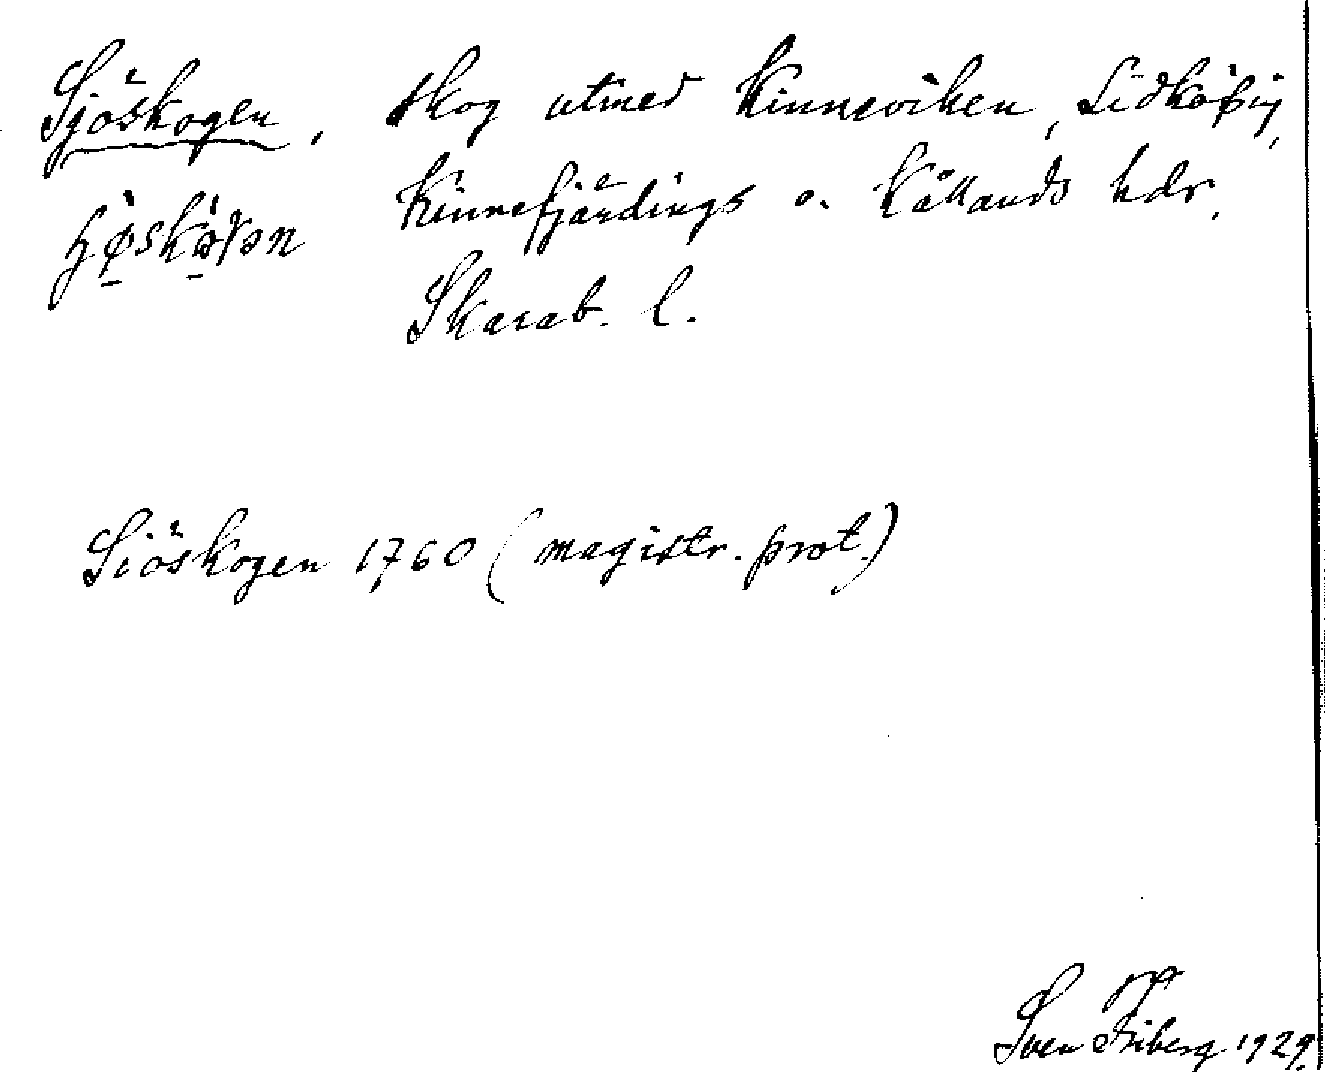 Sjöskogen, skog utmed Kinneviken, Lidköping,
Kinnefjärdings o. Kållands hdr,
Skarab. l.
Siöskogen 1760 (magistr. prot.)
Sven Friberg 1929.